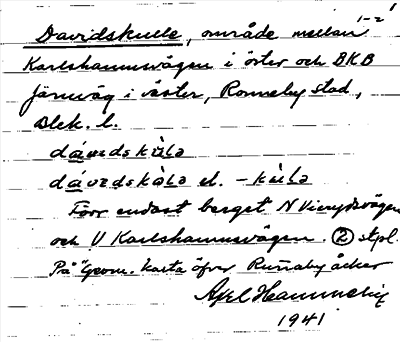 1-2
Davidskulle, område mellan
Karlshamnsvägen i öster och BKB
järnväg i väster, Ronneby stad,
Blek. l.
dávedskùlə
dávedskùlə el. -kùlə
Förr endast berget N Vierydsvägen
och V Karlshamnsvägen. ② stpl.
På "Geom. karta öfver Runaby åcker
Axel
1941